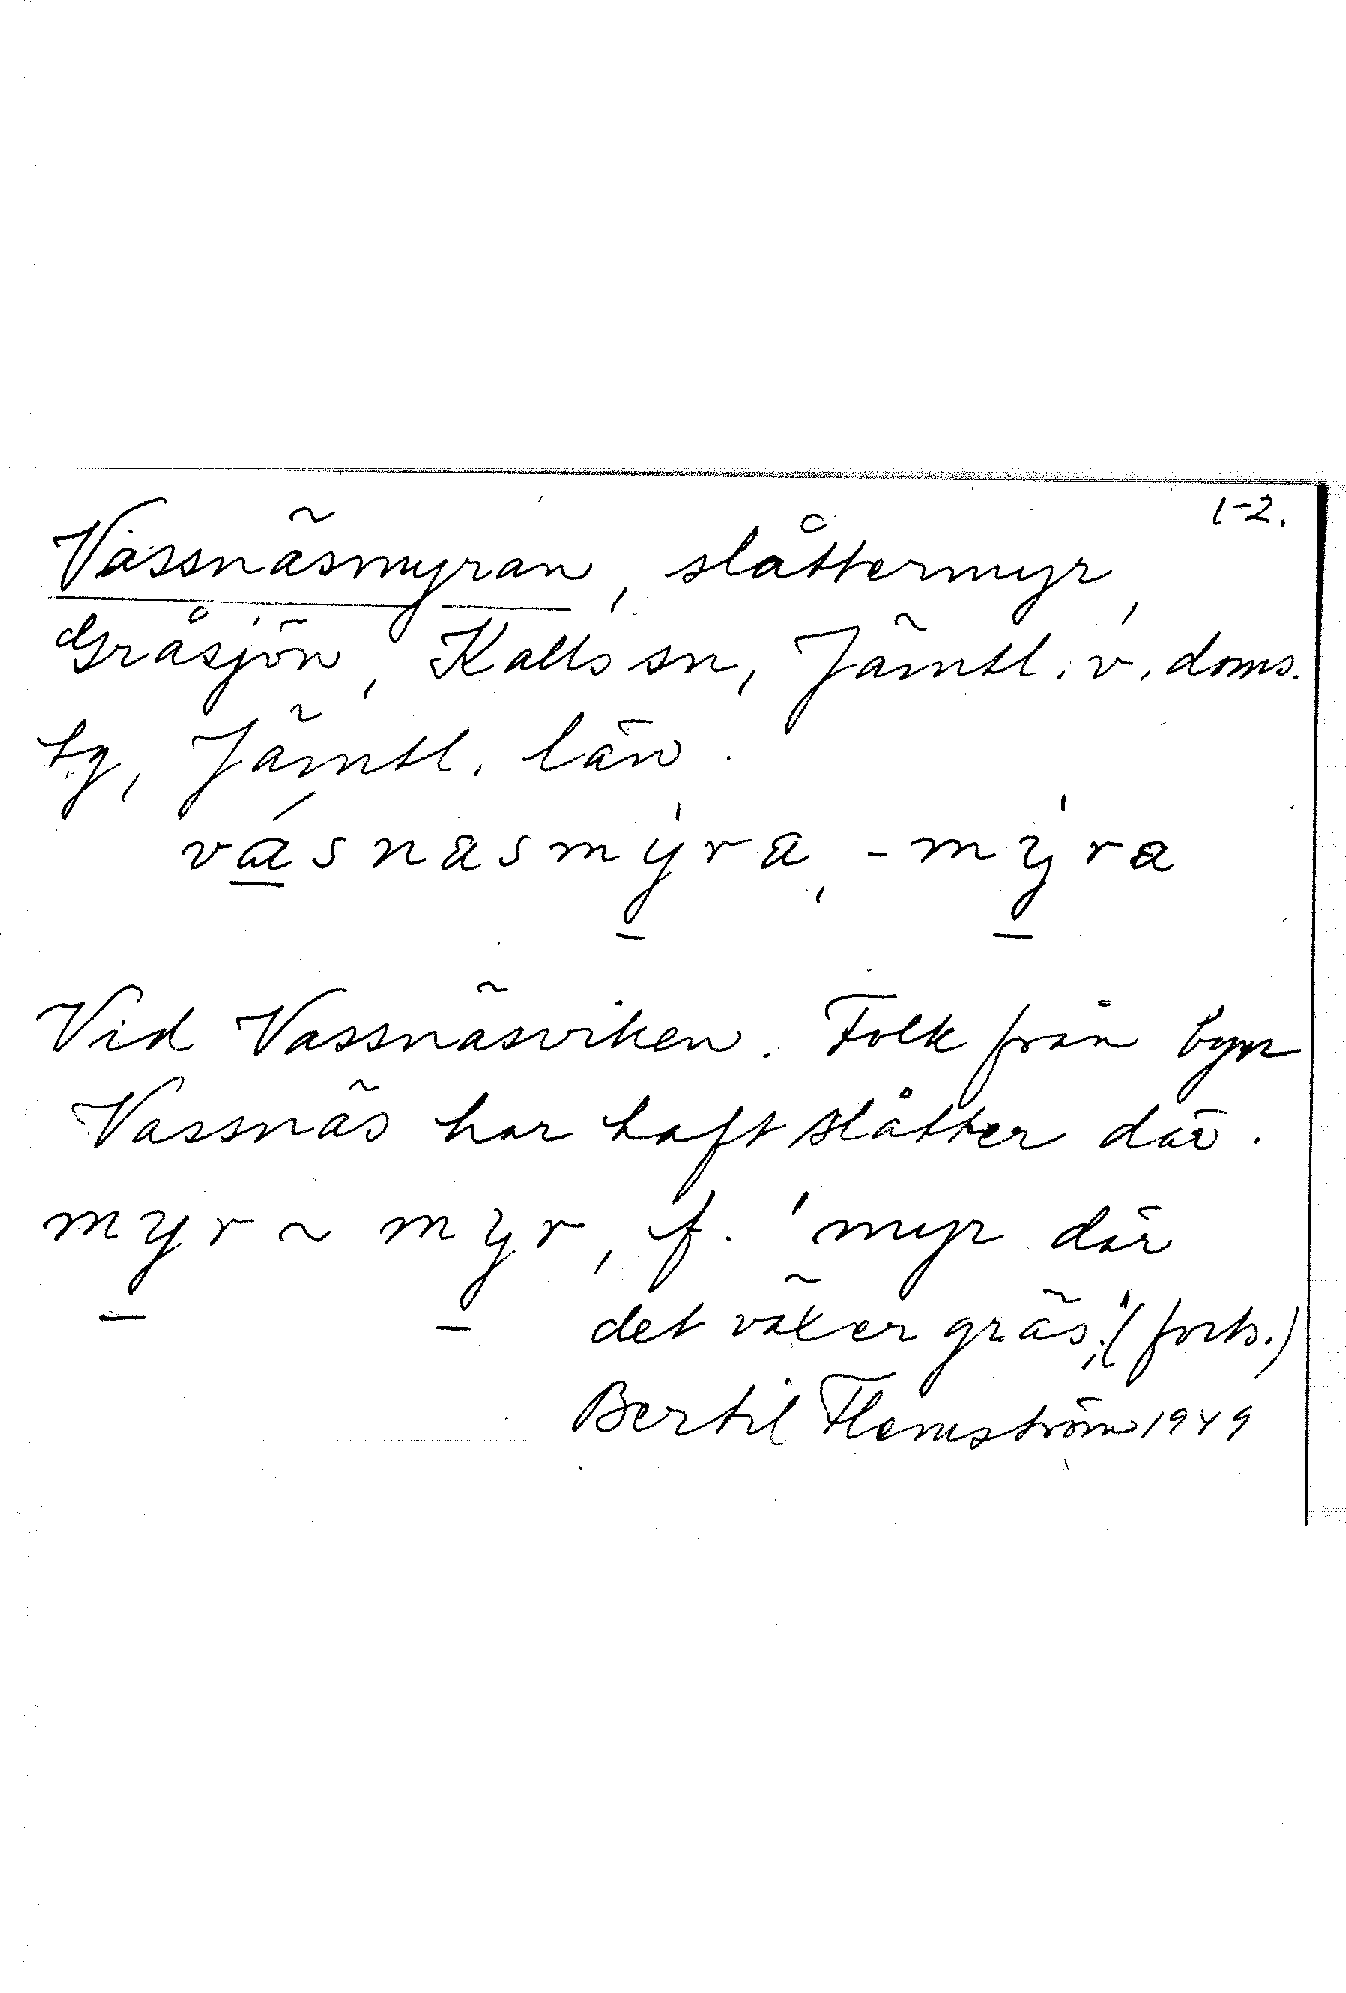 1-2.
Vassnäsmyran, slåttermyr,
Gråsjön, Kalls sn, Jämtl. v. doms.
tg, Jämtl. län.
vásnasmýra, -mýra
Vid Vassnäsviken. Folk från byn
Vassnäs har haft slåtter där.
myr ~ myr, f. 'myr där
det växer gräs'; (forts.)
Bertil Flemström 1949